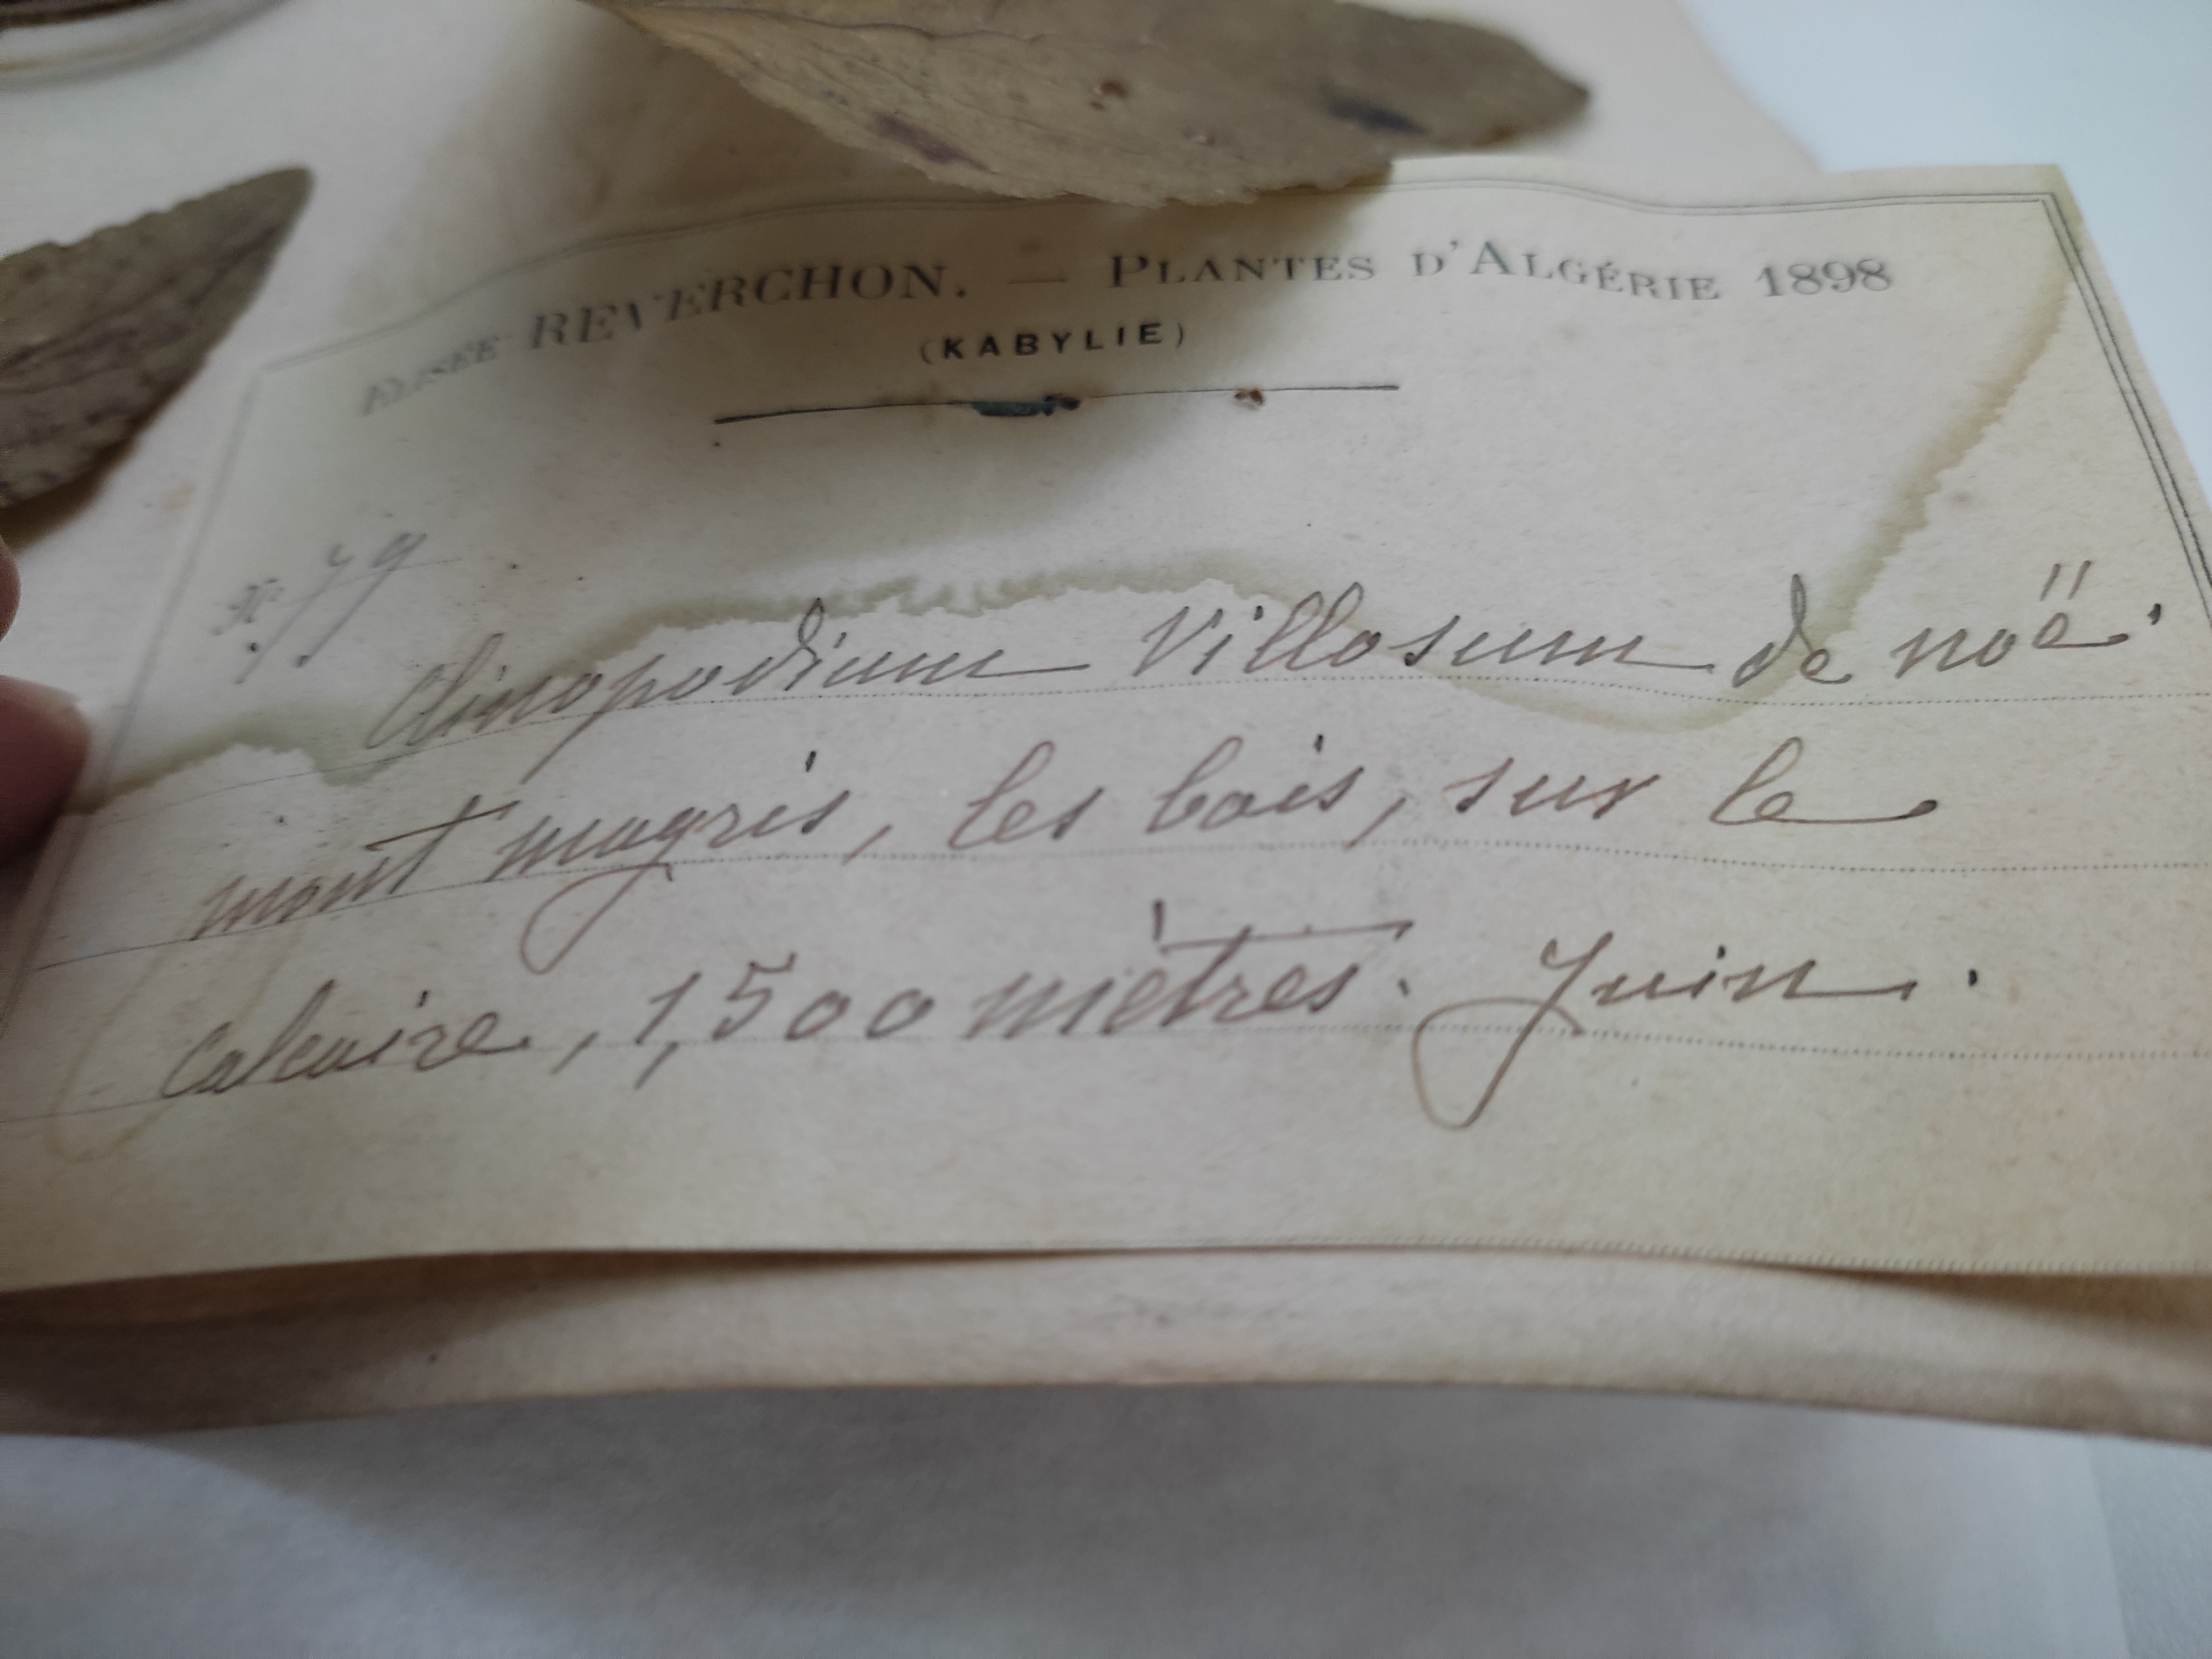 ELISÉE REVERCHON. — PLANTES D'ALGÉRIE 1898
(KABYLIE)
N.° 79
Clinopodium Villosum de noë.
mont magris, les bois, sur le
calcaire, 1,500 mètres. Juin.